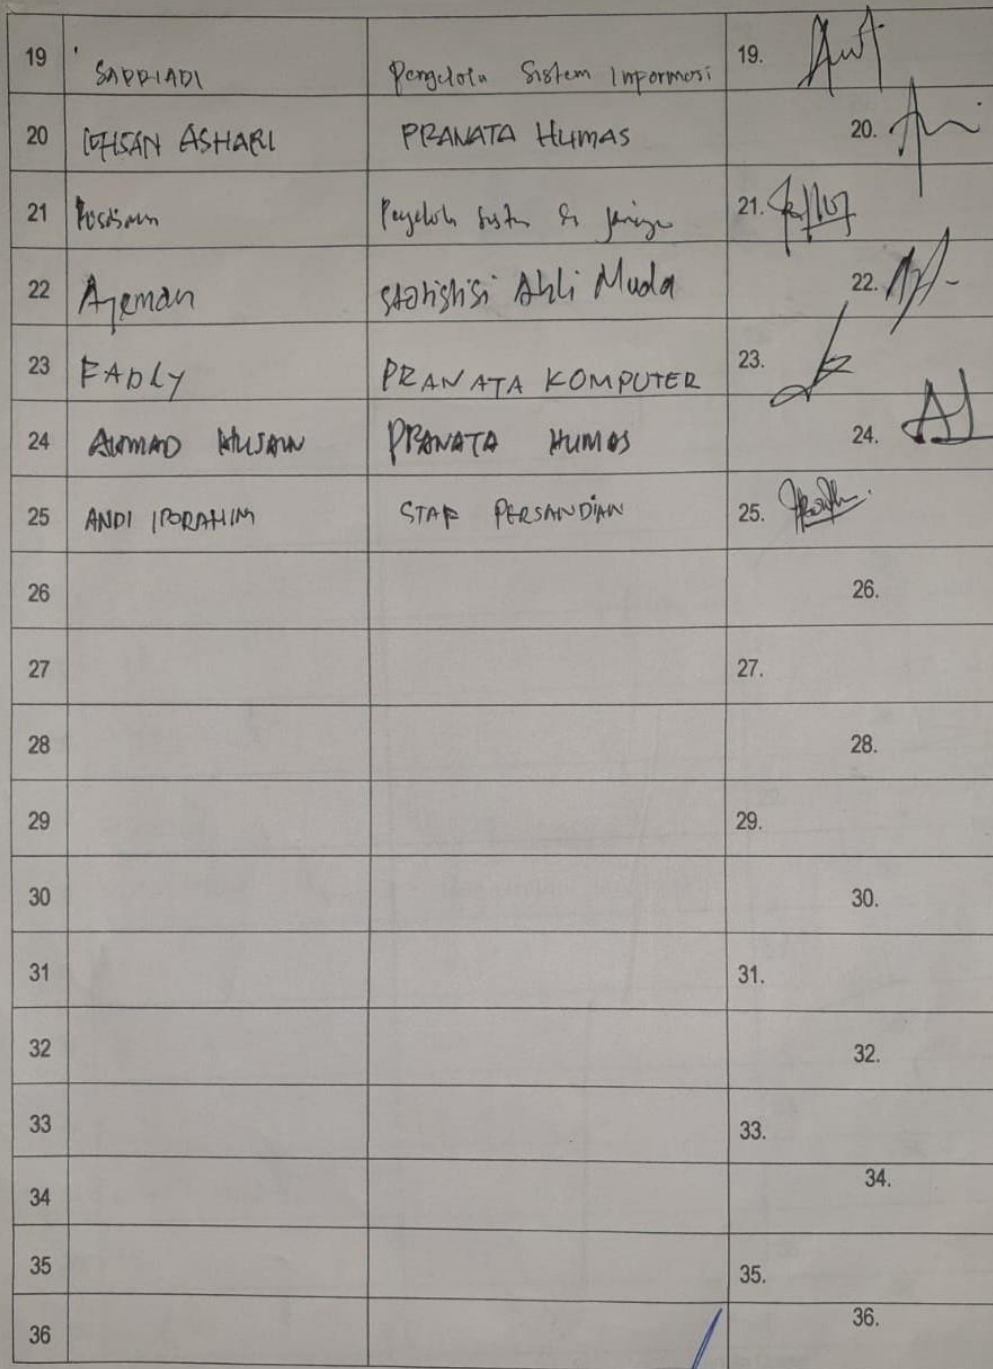 19 SAPRIADI Pengelola Sistem Impormasi 19.
20 ICHSAN ASHARI PRANATA HUMAS 20.
21 21.
22 Ajeman statistisi Ahli Muda 22.
23 FADLY PRANATA KOMPUTER 23.
24 AHMAD HUSAIN PRANATA HUMAS 24.
25 ANDI IBRAHIM STAF PERSANDIAN 25.
26 26.
27 27.
28 28.
29 29.
30 30.
31 31.
32 32.
33 33.
34 34.
35 35.
36 36.